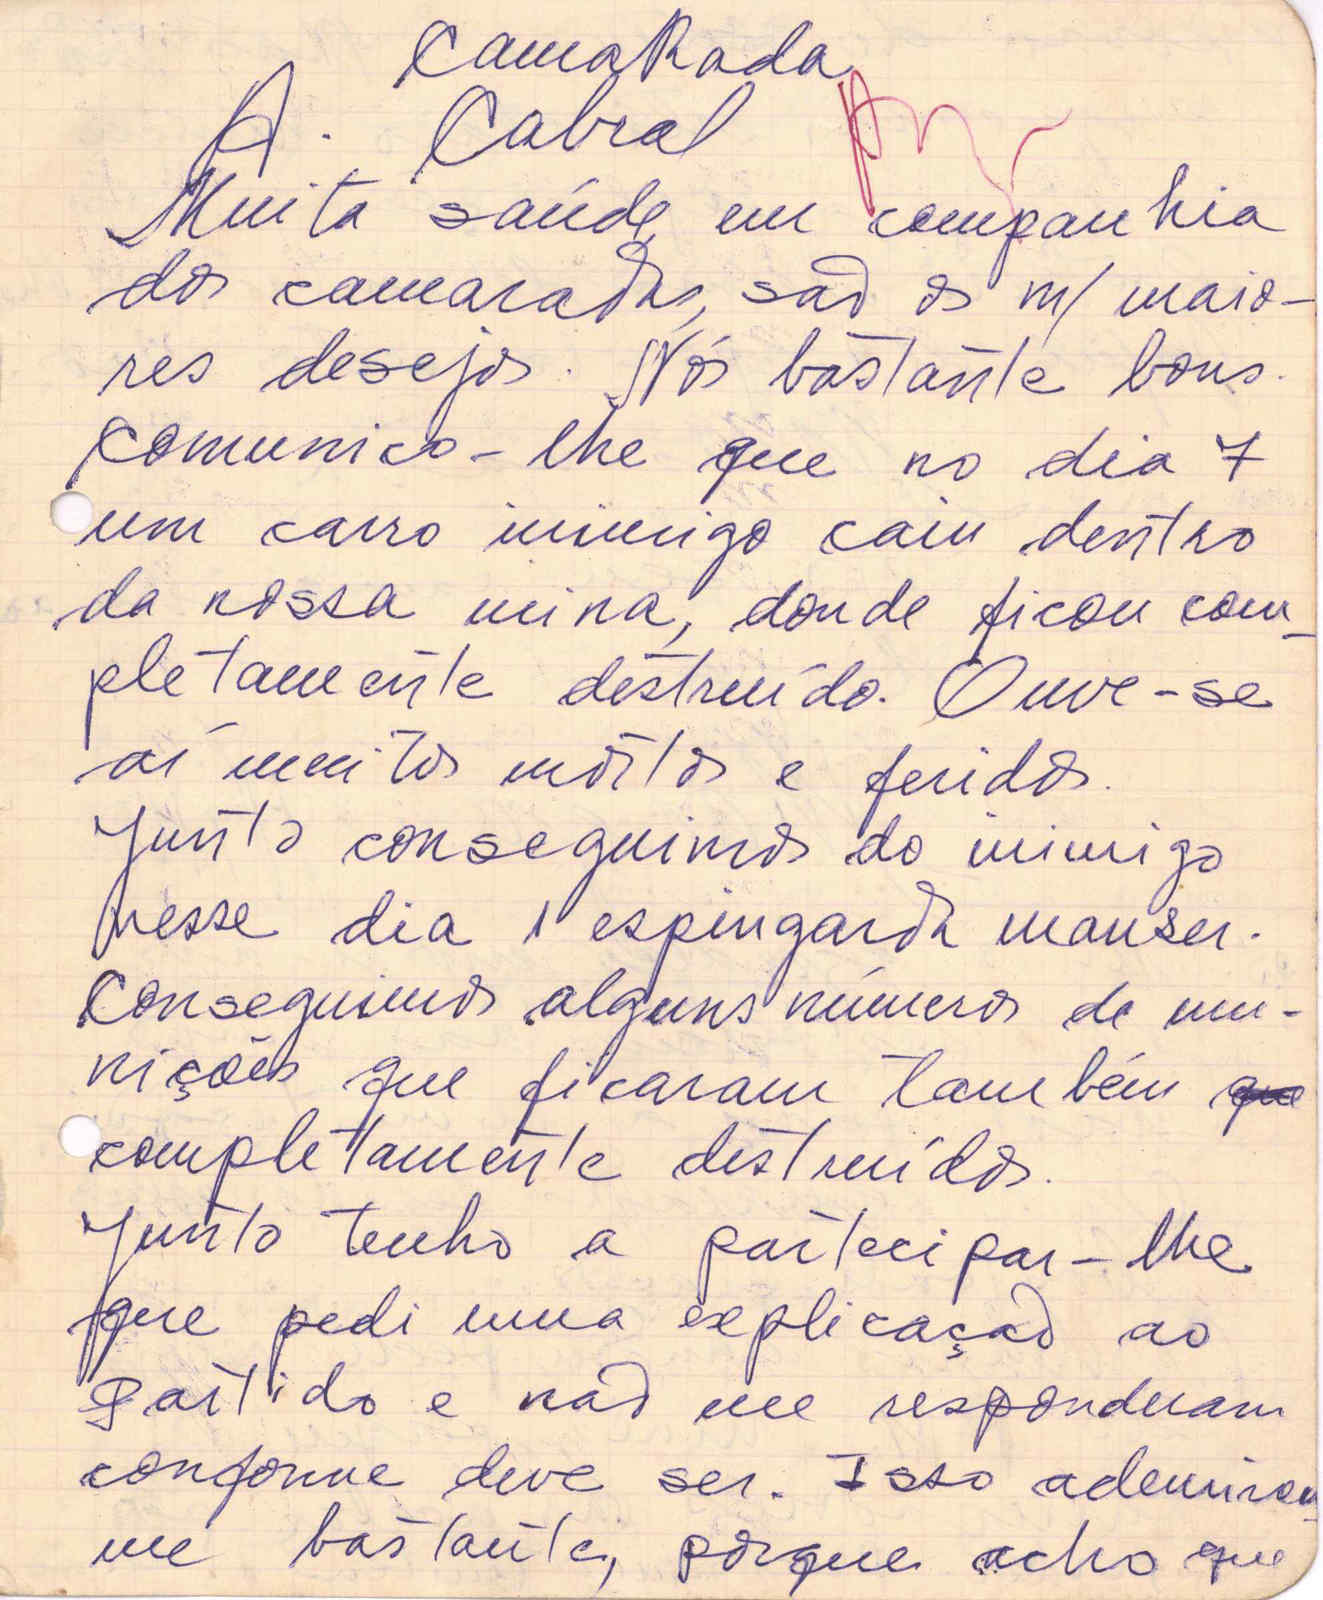 Camarada
A. Cabral
Muita saúde, em companhia
dos camaradas, são os m/ maio-
res desejos. Nós bastante bons.
Comunico-lhe que no dia 7
um carro inimigo caiu dentro
da nossa mina, donde ficou com-
pletamente destruído. Ouve-se
aí muitos mortos e feridos.
Junto conseguimos do inimigo
nesse dia 1 espingarda mauser.
Conseguimos alguns números de mu-
nições que ficaram também que
completamente destruídos.
Junto tenho a partecipar-lhe
que pedi uma explicação ao
Partido e não me responderam
conforme deve ser. Isso ademirou-
me bastante, porque acho que